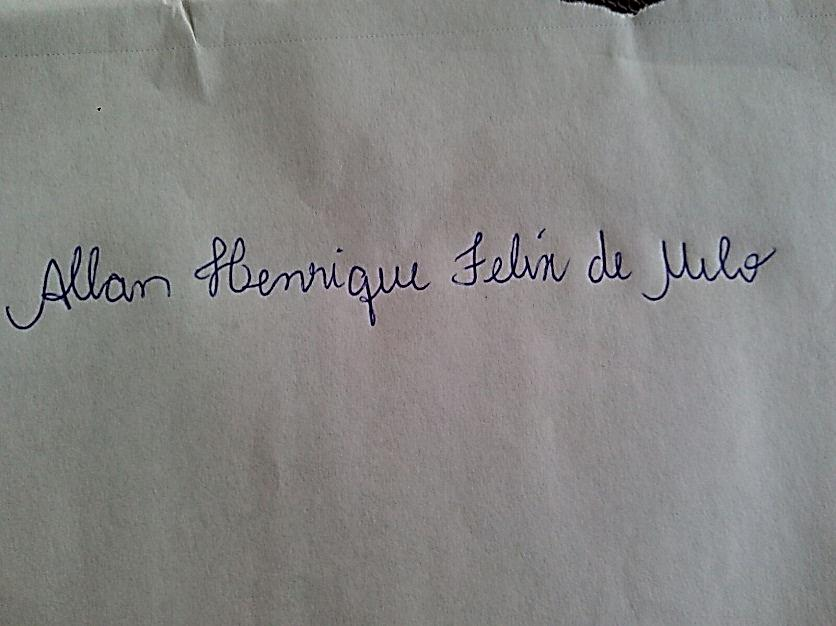 Allan Henrique Felix de Melo